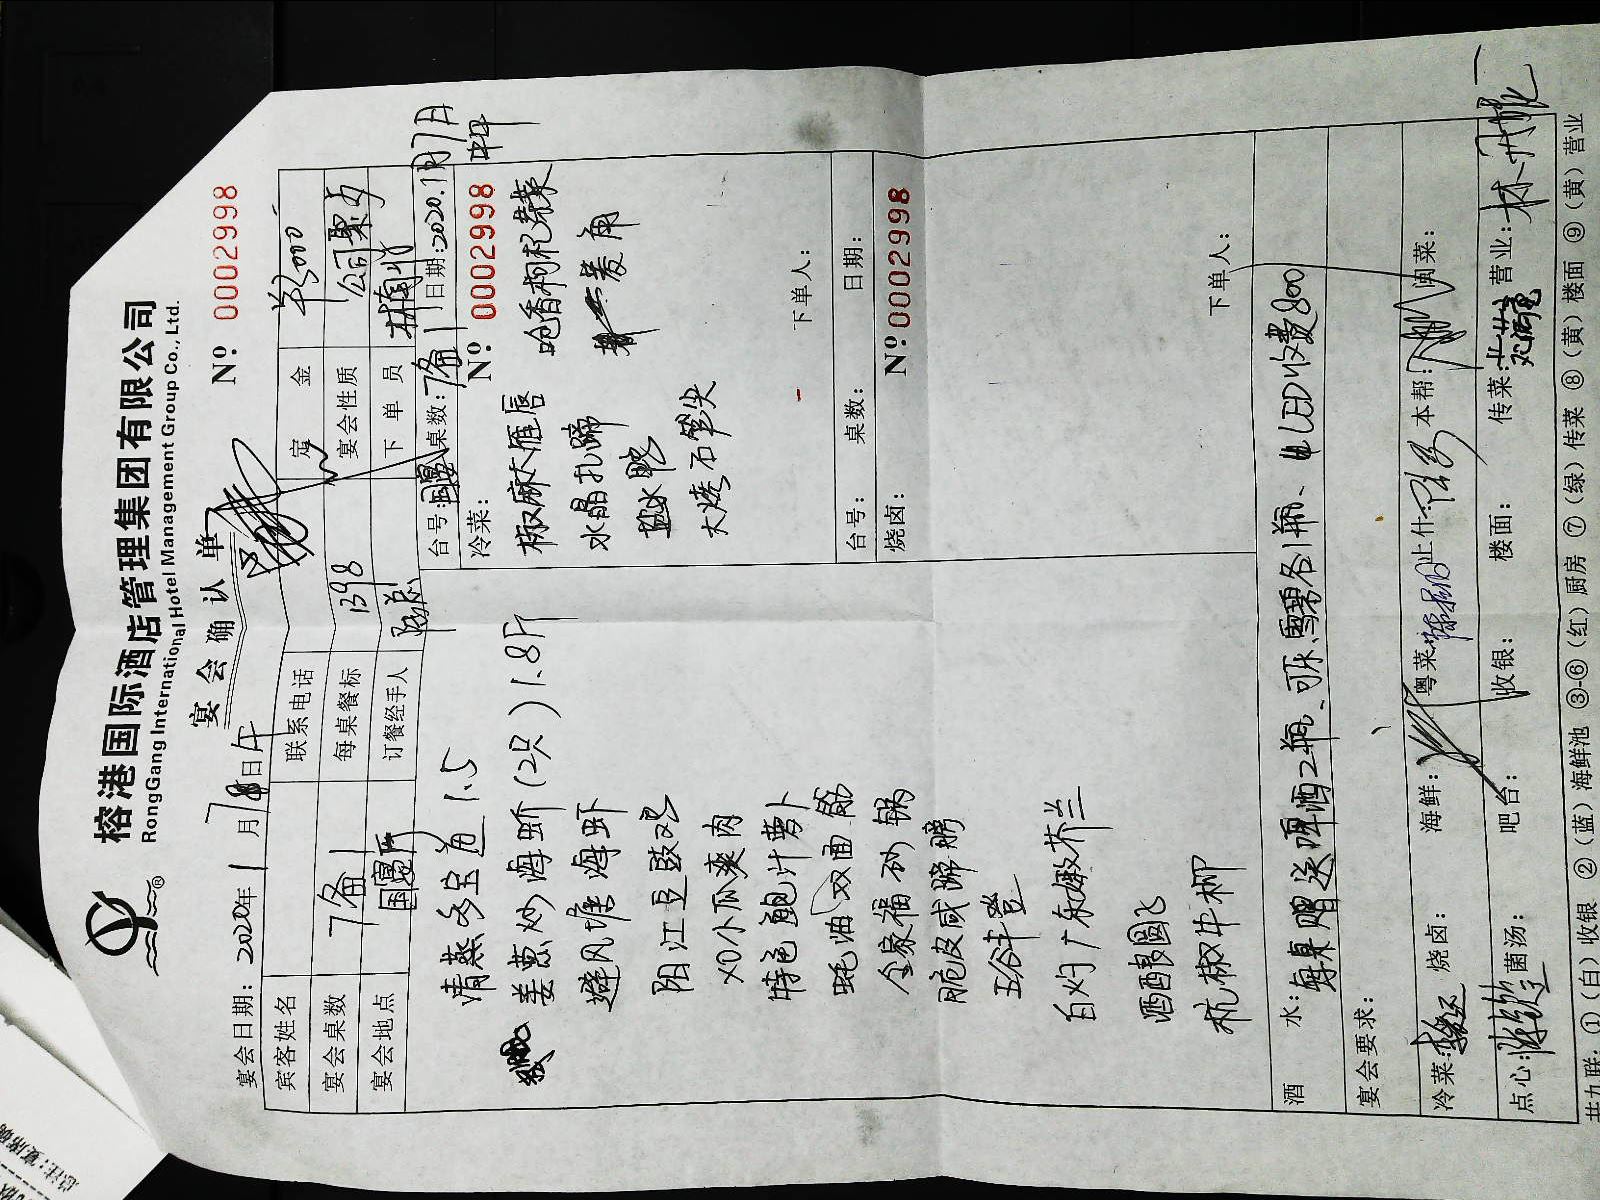 榕港国际酒店管理集团有限公司
RongGang International Hotel Management Group Co., Ltd.
宴会确认单
№: 0002998
宴会日期: 2020年1月8日午
宾客姓名 联系电话 定金 ¥3000
宴会桌数 7备1 每桌餐标 1398 宴会性质 公司聚
宴会地点 国宴厅 订餐经手人 陈总 下单员
台号: 国宴 桌数: 7备1 日期: 2020.1月7日
冷菜: № 0002998
椒麻大雁唇 呛香枸杞芽菜
水晶扎蹄 菱角
盐水鸭
大烤石笋尖
下单人:
台号: 桌数: 日期:
烧卤: №:0002998
下单人:
清蒸多宝鱼 1.5
姜葱炒海蚧(2只)1.8斤
避风塘海虾
阳江豆豉鸡
XO小瓜爽肉
特色鲍汁萝卜
蚝油双面筋
全家福砂锅
脆皮咸蹄膀
五谷丰登
白灼广东嫩芥兰
酒酿圆子
杭椒牛柳
酒水: 每桌赠送啤酒2瓶、可乐、雪碧各1瓶、LED收费800
宴会要求:
冷菜: 烧卤: 海鲜: 粤菜: 上什: 本帮: 闽菜:
点心: 菌汤: 吧台: 收银: 楼面: 传菜: 营业:
共九联: ①(白)收银 ②(蓝)海鲜池 ③-⑥(红)厨房 ⑦(绿)传菜 ⑧(黄)楼面 ⑨(黄)营业